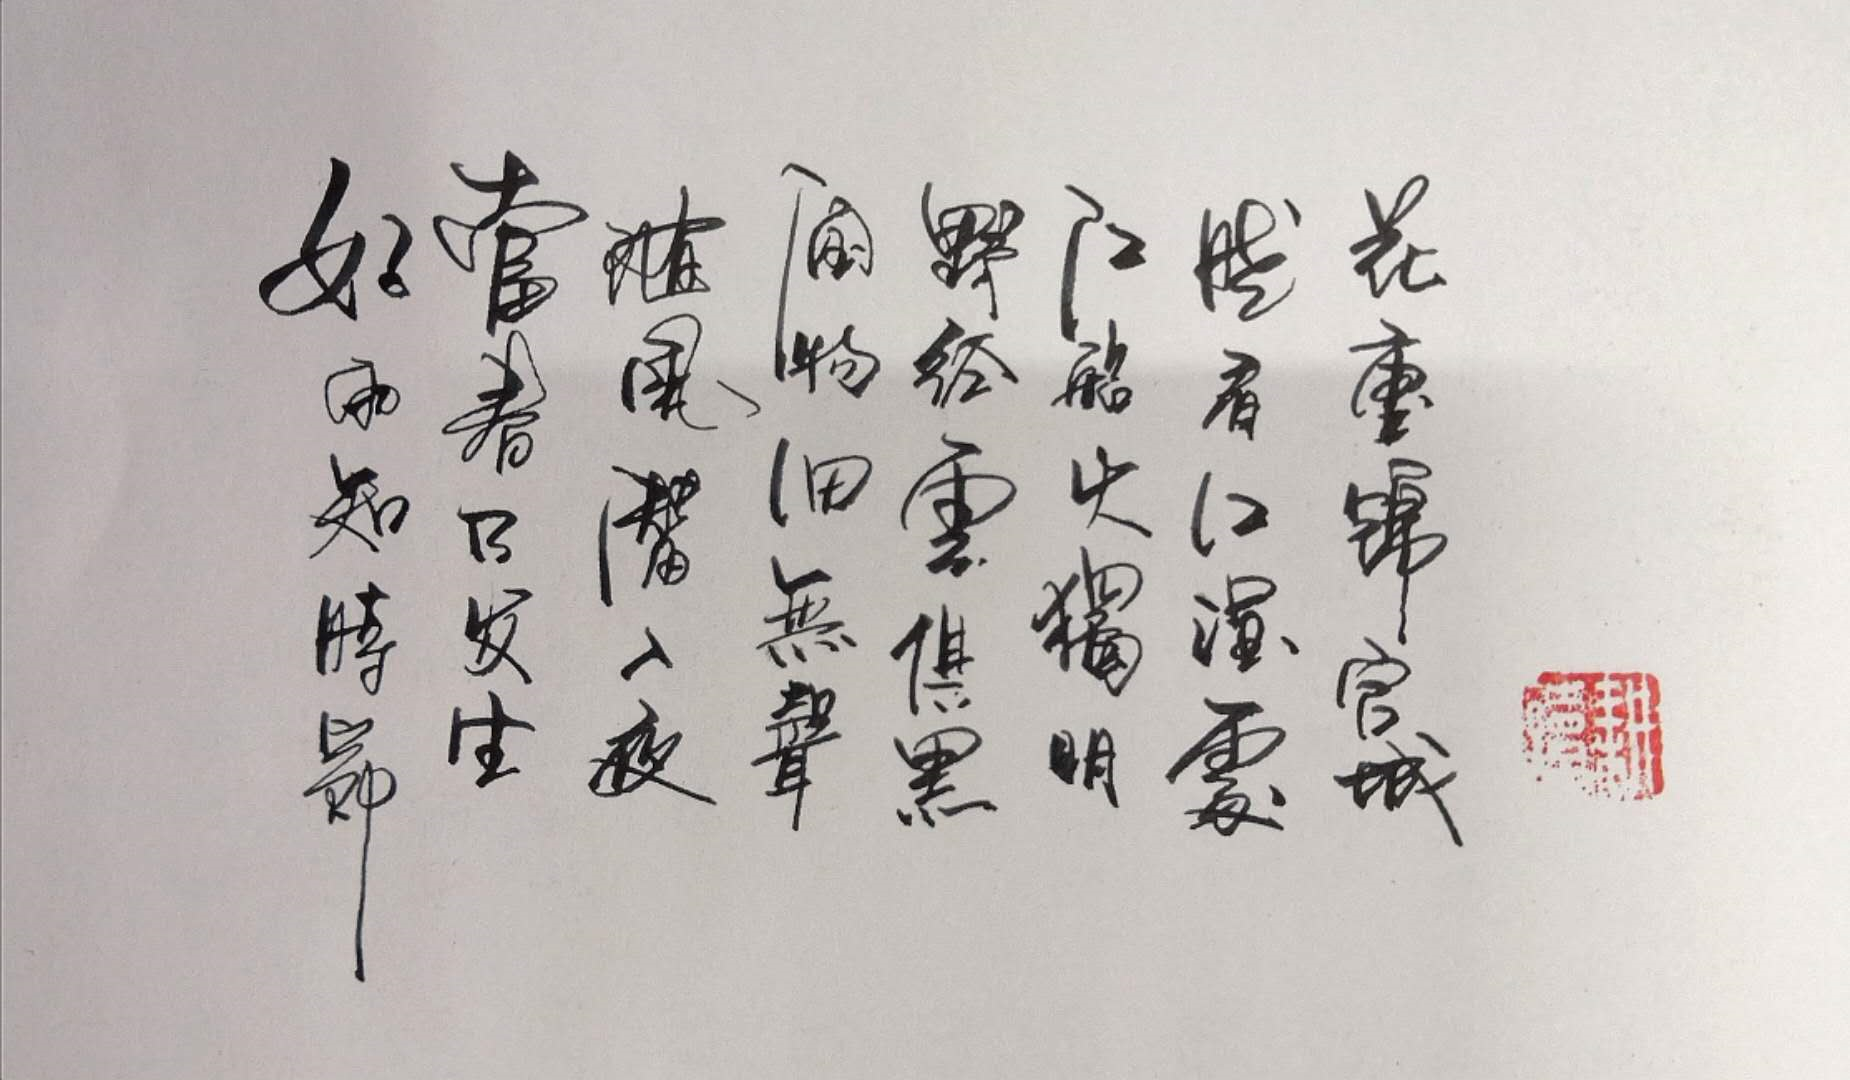 好雨知時節
當春乃发生
隨風潛入夜
润物细無聲
野径雲俱黑
江船火獨明
晓看红湿處
花重錦官城